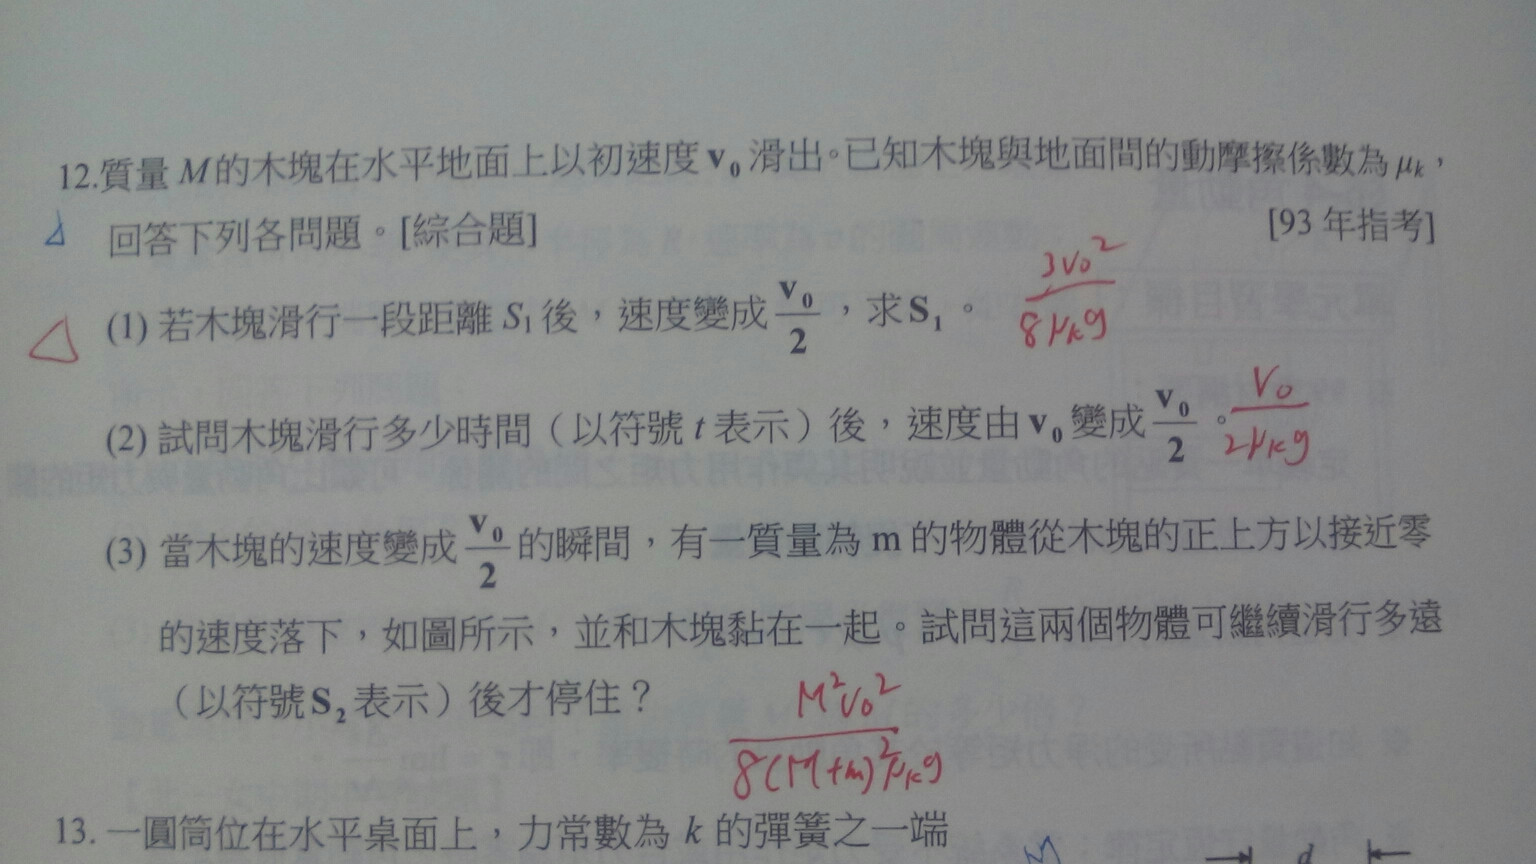 12.質量 M的木塊在水平地面上以初速度 v₀ 滑出。已知木塊與地面間的動摩擦係數為 μₖ，
回答下列各問題。[綜合題] [93 年指考]
(1) 若木塊滑行一段距離 S₁ 後，速度變成 v₀/2，求 S₁。 3v₀²/8μₖg
(2) 試問木塊滑行多少時間（以符號 t 表示）後，速度由 v₀ 變成 v₀/2。 v₀/2μₖg
(3) 當木塊的速度變成 v₀/2 的瞬間，有一質量為 m 的物體從木塊的正上方以接近零
的速度落下，如圖所示，並和木塊黏在一起。試問這兩個物體可繼續滑行多遠
（以符號 S₂ 表示）後才停住？ M²v₀²/8(M+m)²μₖg
13. 一圓筒位在水平桌面上，力常數為 k 的彈簧之一端
d